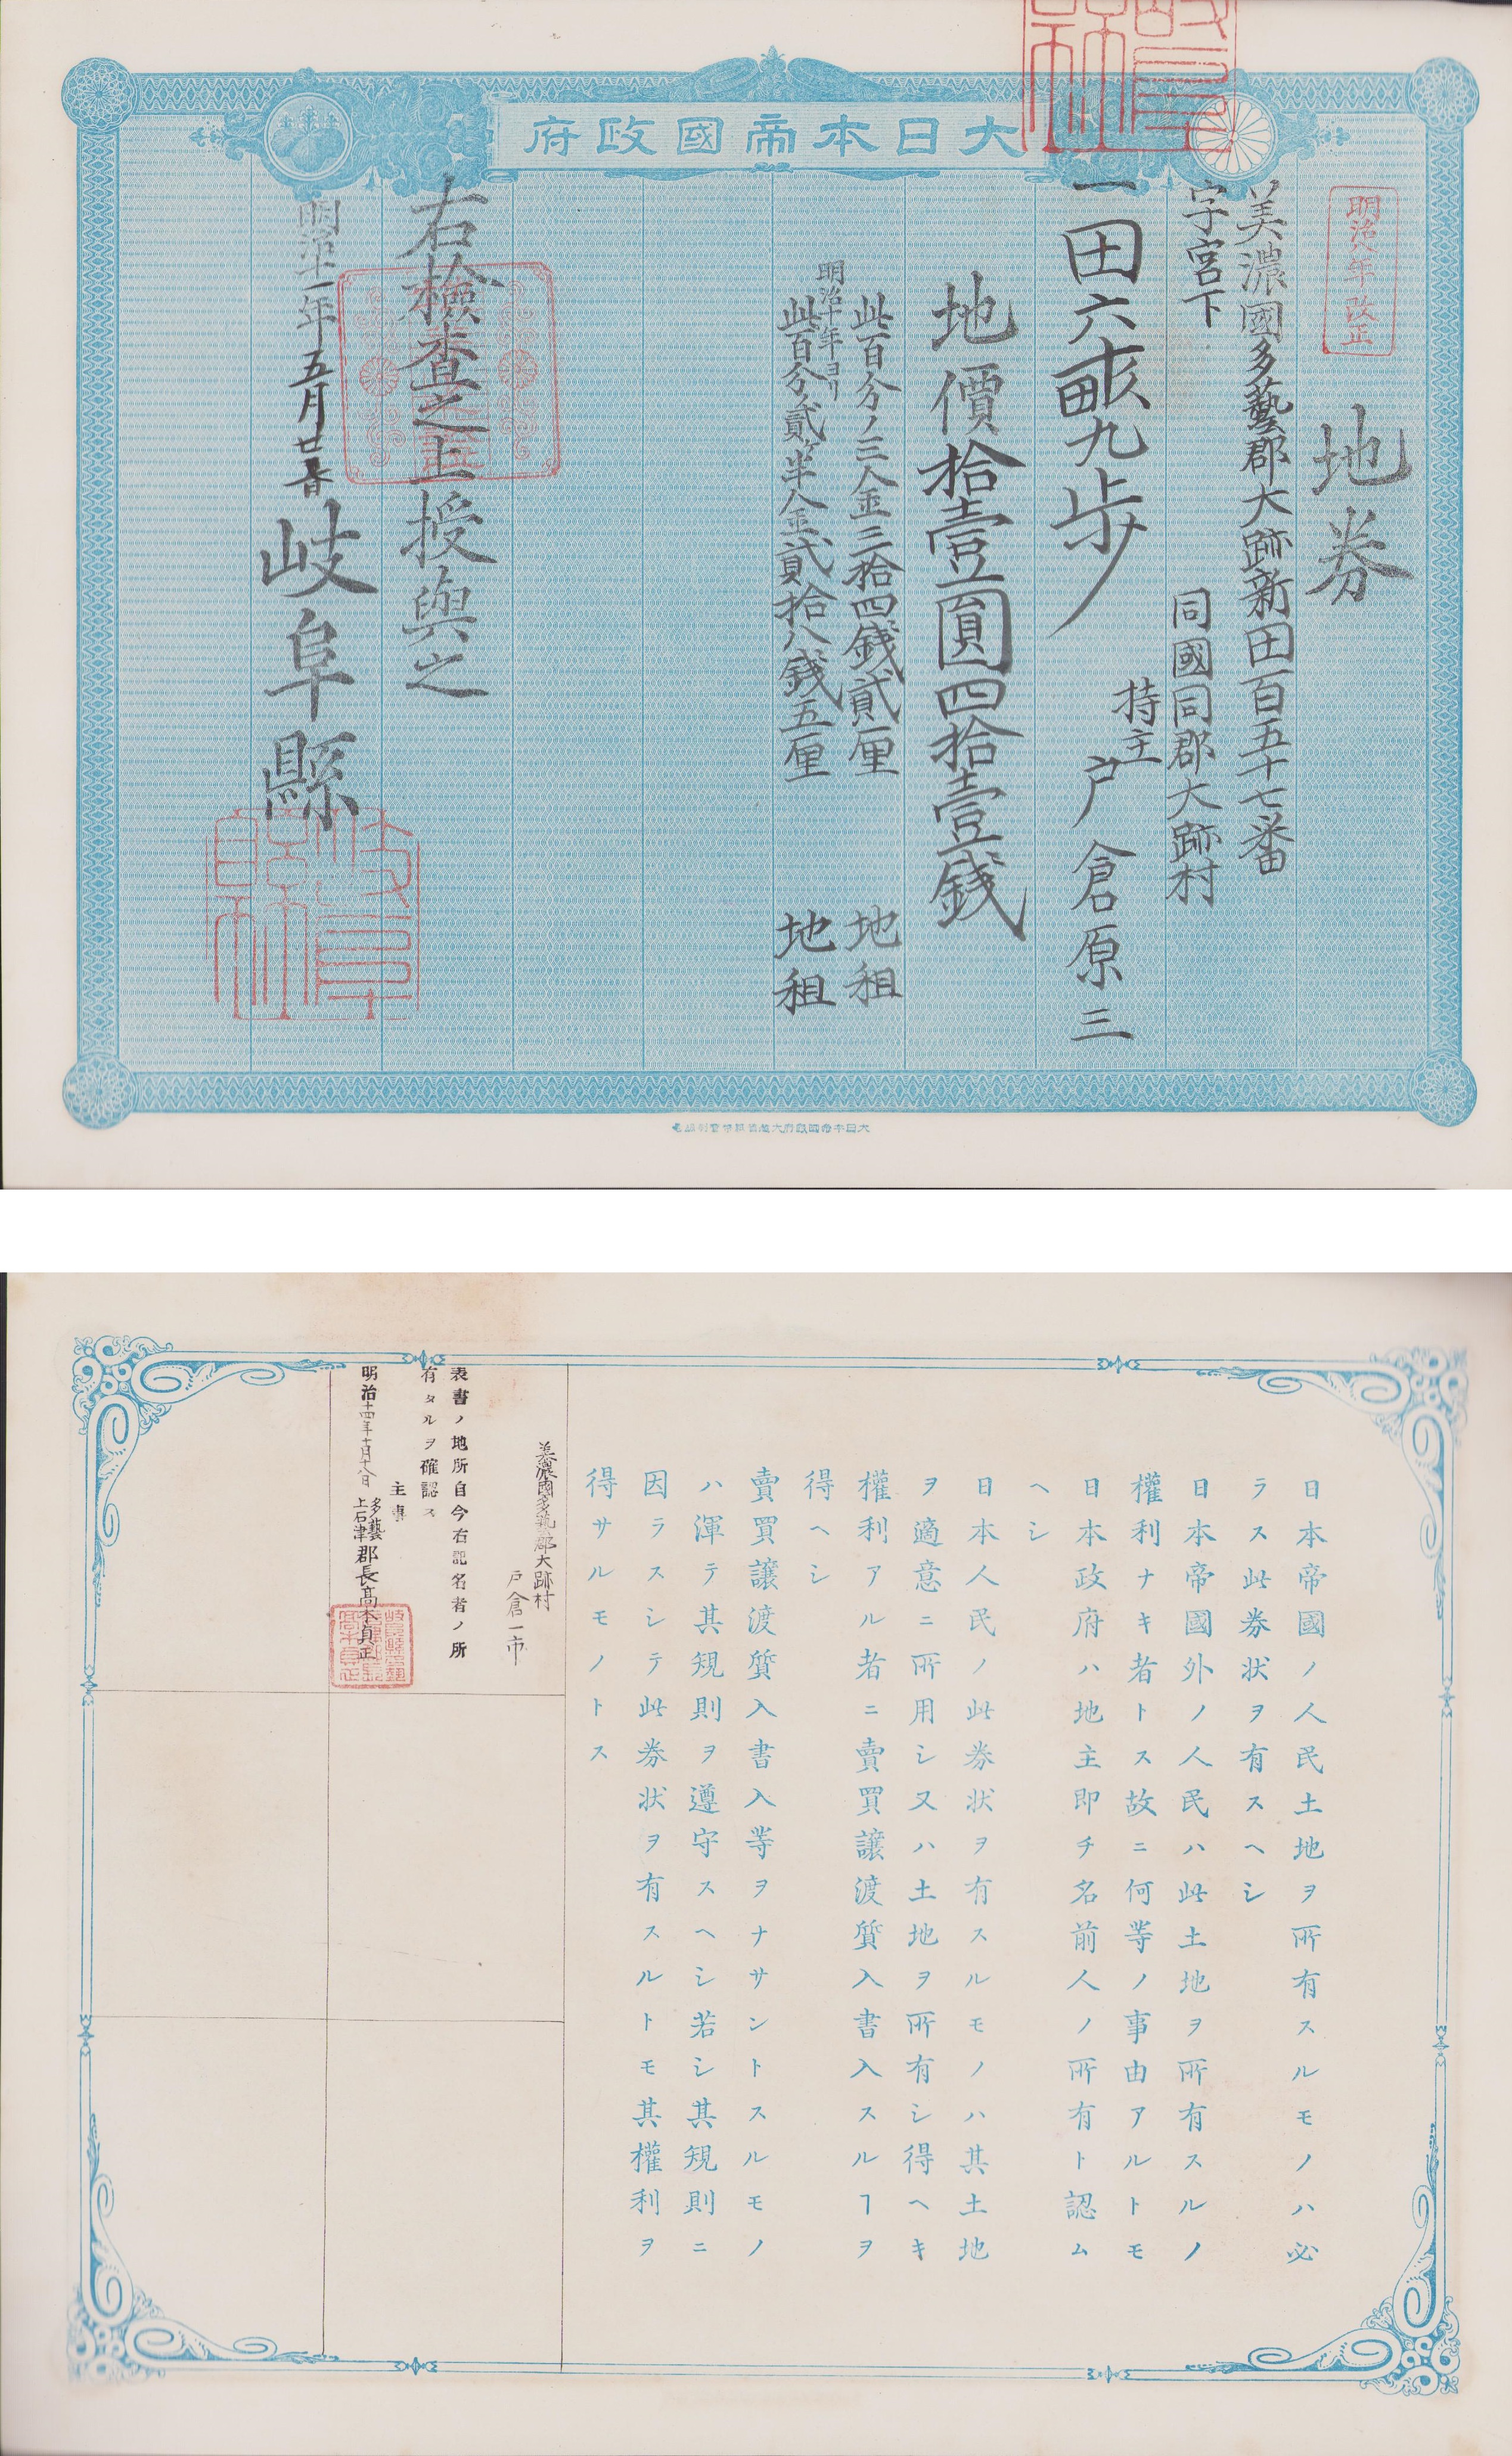 大日本帝國政府
明治八年改正
地券
美濃國多藝郡大跡新田百五十七番
字宮下
同國同郡大跡村
一田六畝九歩
持主
戸倉原三
地價拾壹圓四拾壹錢
此百分ノ三金三拾四錢貳厘 地租
明治十年ヨリ
此百分ノ貳ヶ半金貳拾八錢五厘 地租
右檢査之上授與之
明治十一年五月
岐阜縣
日本帝國ノ人民土地ヲ所有スルモノハ必
ラス此券状ヲ有スヘシ
日本帝國外ノ人民ハ此土地ヲ所有スルノ
權利ナキ者トス故ニ何等ノ事由アルトモ
日本政府ハ地主即チ名前人ノ所有ト認ム
ヘシ
日本人民ノ此券状ヲ有スルモノハ其土地
ヲ適意ニ所用シ又ハ土地ヲ所有シ得ヘキ
權利アル者ニ賣買讓渡質入書入スルヿヲ
得ヘシ
賣買讓渡質入書入等ヲナサントスルモノ
ハ渾テ其規則ヲ遵守スヘシ若シ其規則ニ
因ラスシテ此券状ヲ有スルトモ其權利ヲ
得サルモノトス
美濃國多藝郡大跡村
戸倉一市
表書ノ地所自今右記名者ノ所
有タルヲ確認ス
主事
明治十四年十月十八日
多藝
上石津
郡長高木貞正